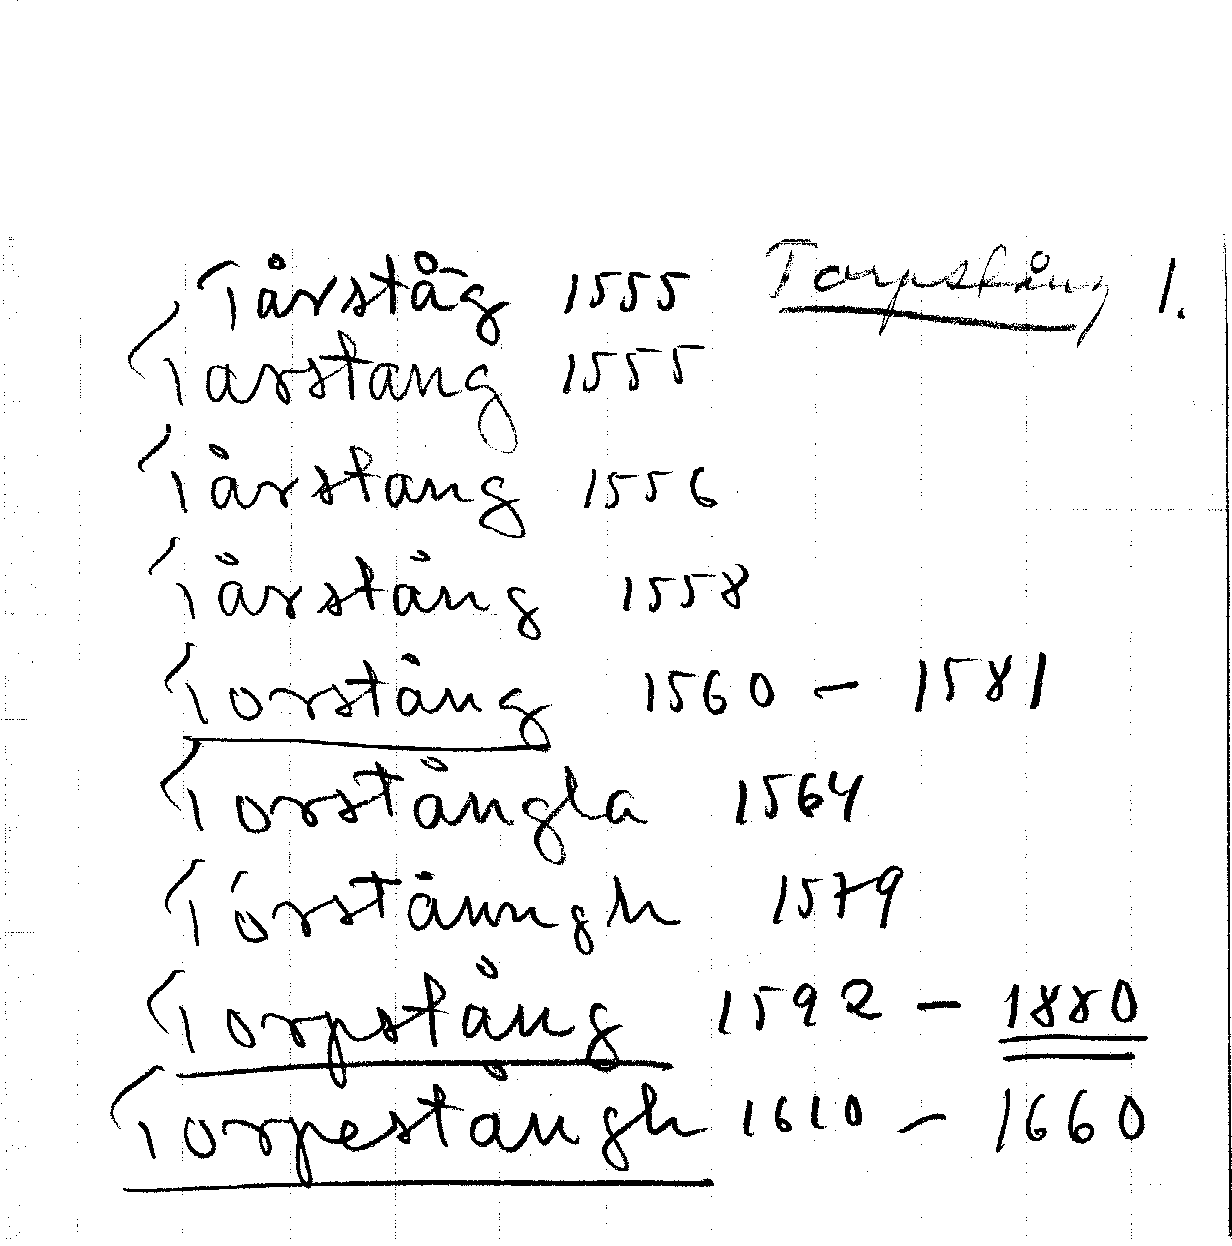 Torpstång 1.
Tårståg 1555
Tarstang 1555
Tårstang 1556
Tårstång 1558
Torstång 1560 - 1581
Torstångla 1564
Tórstånngh 1579
Torpstång 1592 - 1880
Torpestångh 1610 - 1660